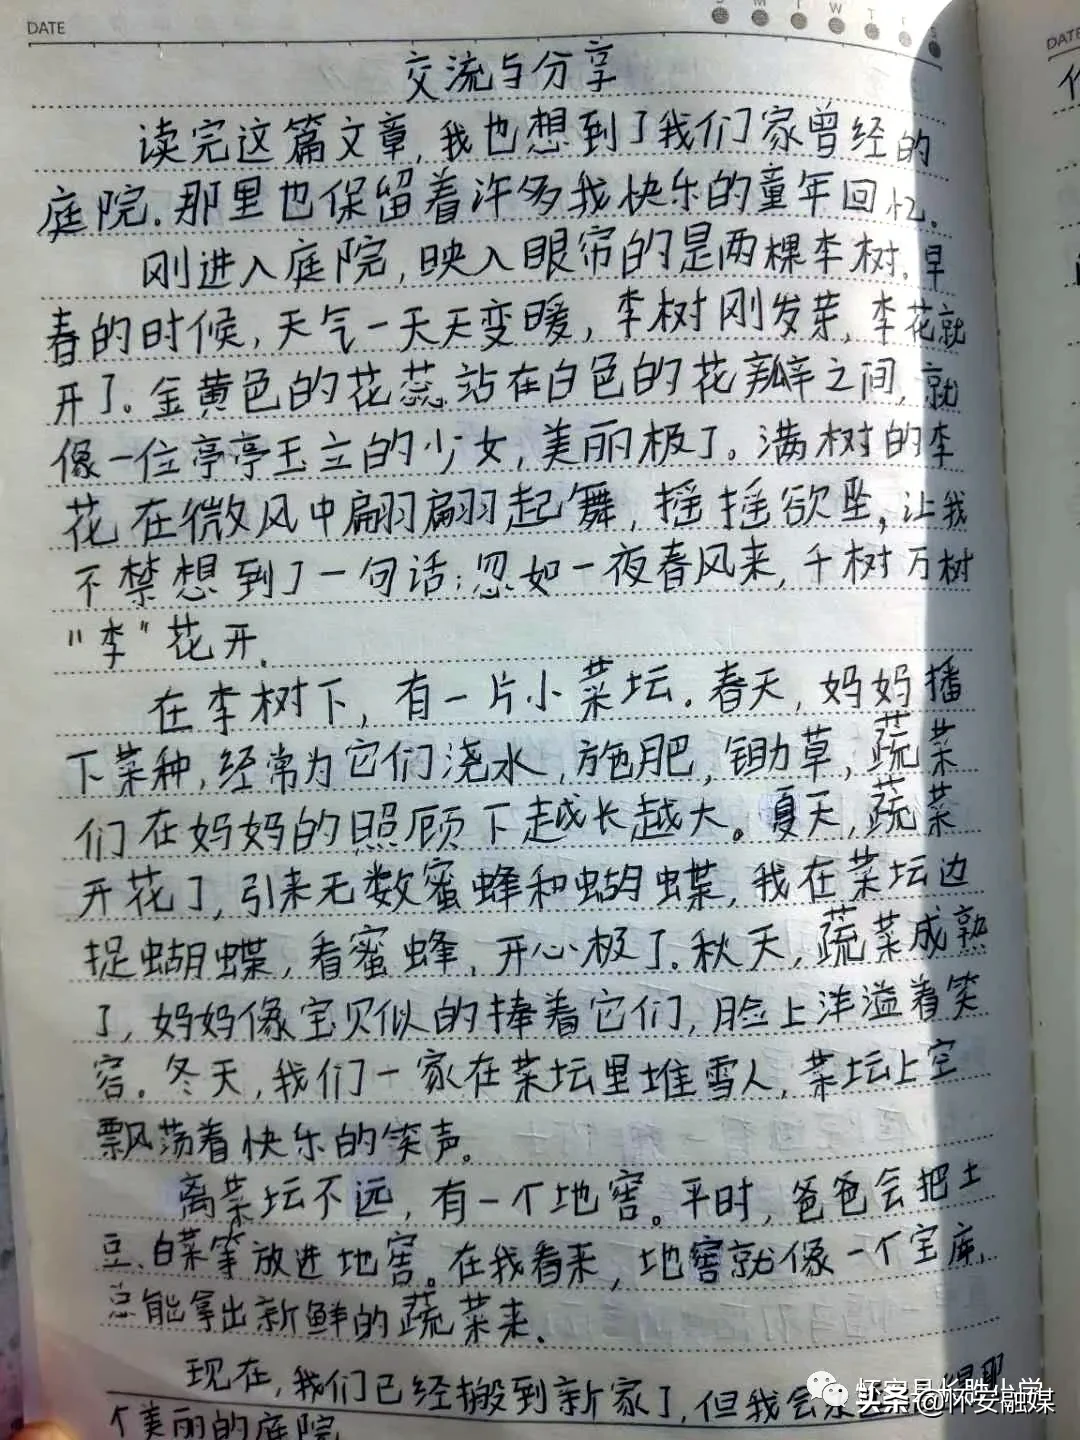 DATE
S M T W T F S
交流与分享
读完这篇文章,我也想到了我们家曾经的
庭院.那里也保留着许多我快乐的童年回忆.
刚进入庭院,映入眼帘的是两棵李树.早
春的时候,天气一天天变暖,李树刚发芽,李花就
开了。金黄色的花蕊站在白色的花瓣之间,就
像一位亭亭玉立的少女,美丽极了。满树的李
花在微风中翩翩起舞,摇摇欲坠,让我
不禁想到了一句话:忽如一夜春风来,千树万树
"李"花开.
在李树下,有一片小菜坛.春天,妈妈播
下菜种,经常为它们浇水,施肥,锄草,蔬菜
们在妈妈的照顾下越长越大。夏天,蔬菜
开花了,引来无数蜜蜂和蝴蝶,我在菜坛边
捉蝴蝶,看蜜蜂,开心极了.秋天,蔬菜成熟
了,妈妈像宝贝似的捧着它们,脸上洋溢着笑
容。冬天,我们一家在菜坛里堆雪人,菜坛上空
飘荡着快乐的笑声。
离菜坛不远,有一个地窖。平时,爸爸会把土
豆、白菜等放进地窖。在我看来,地窖就像一个宝库,
总能拿出新鲜的蔬菜来.
现在,我们已经搬到新家了,但我会
个美丽的庭院
怀安县长胜小学
头条@怀安融媒
DATE